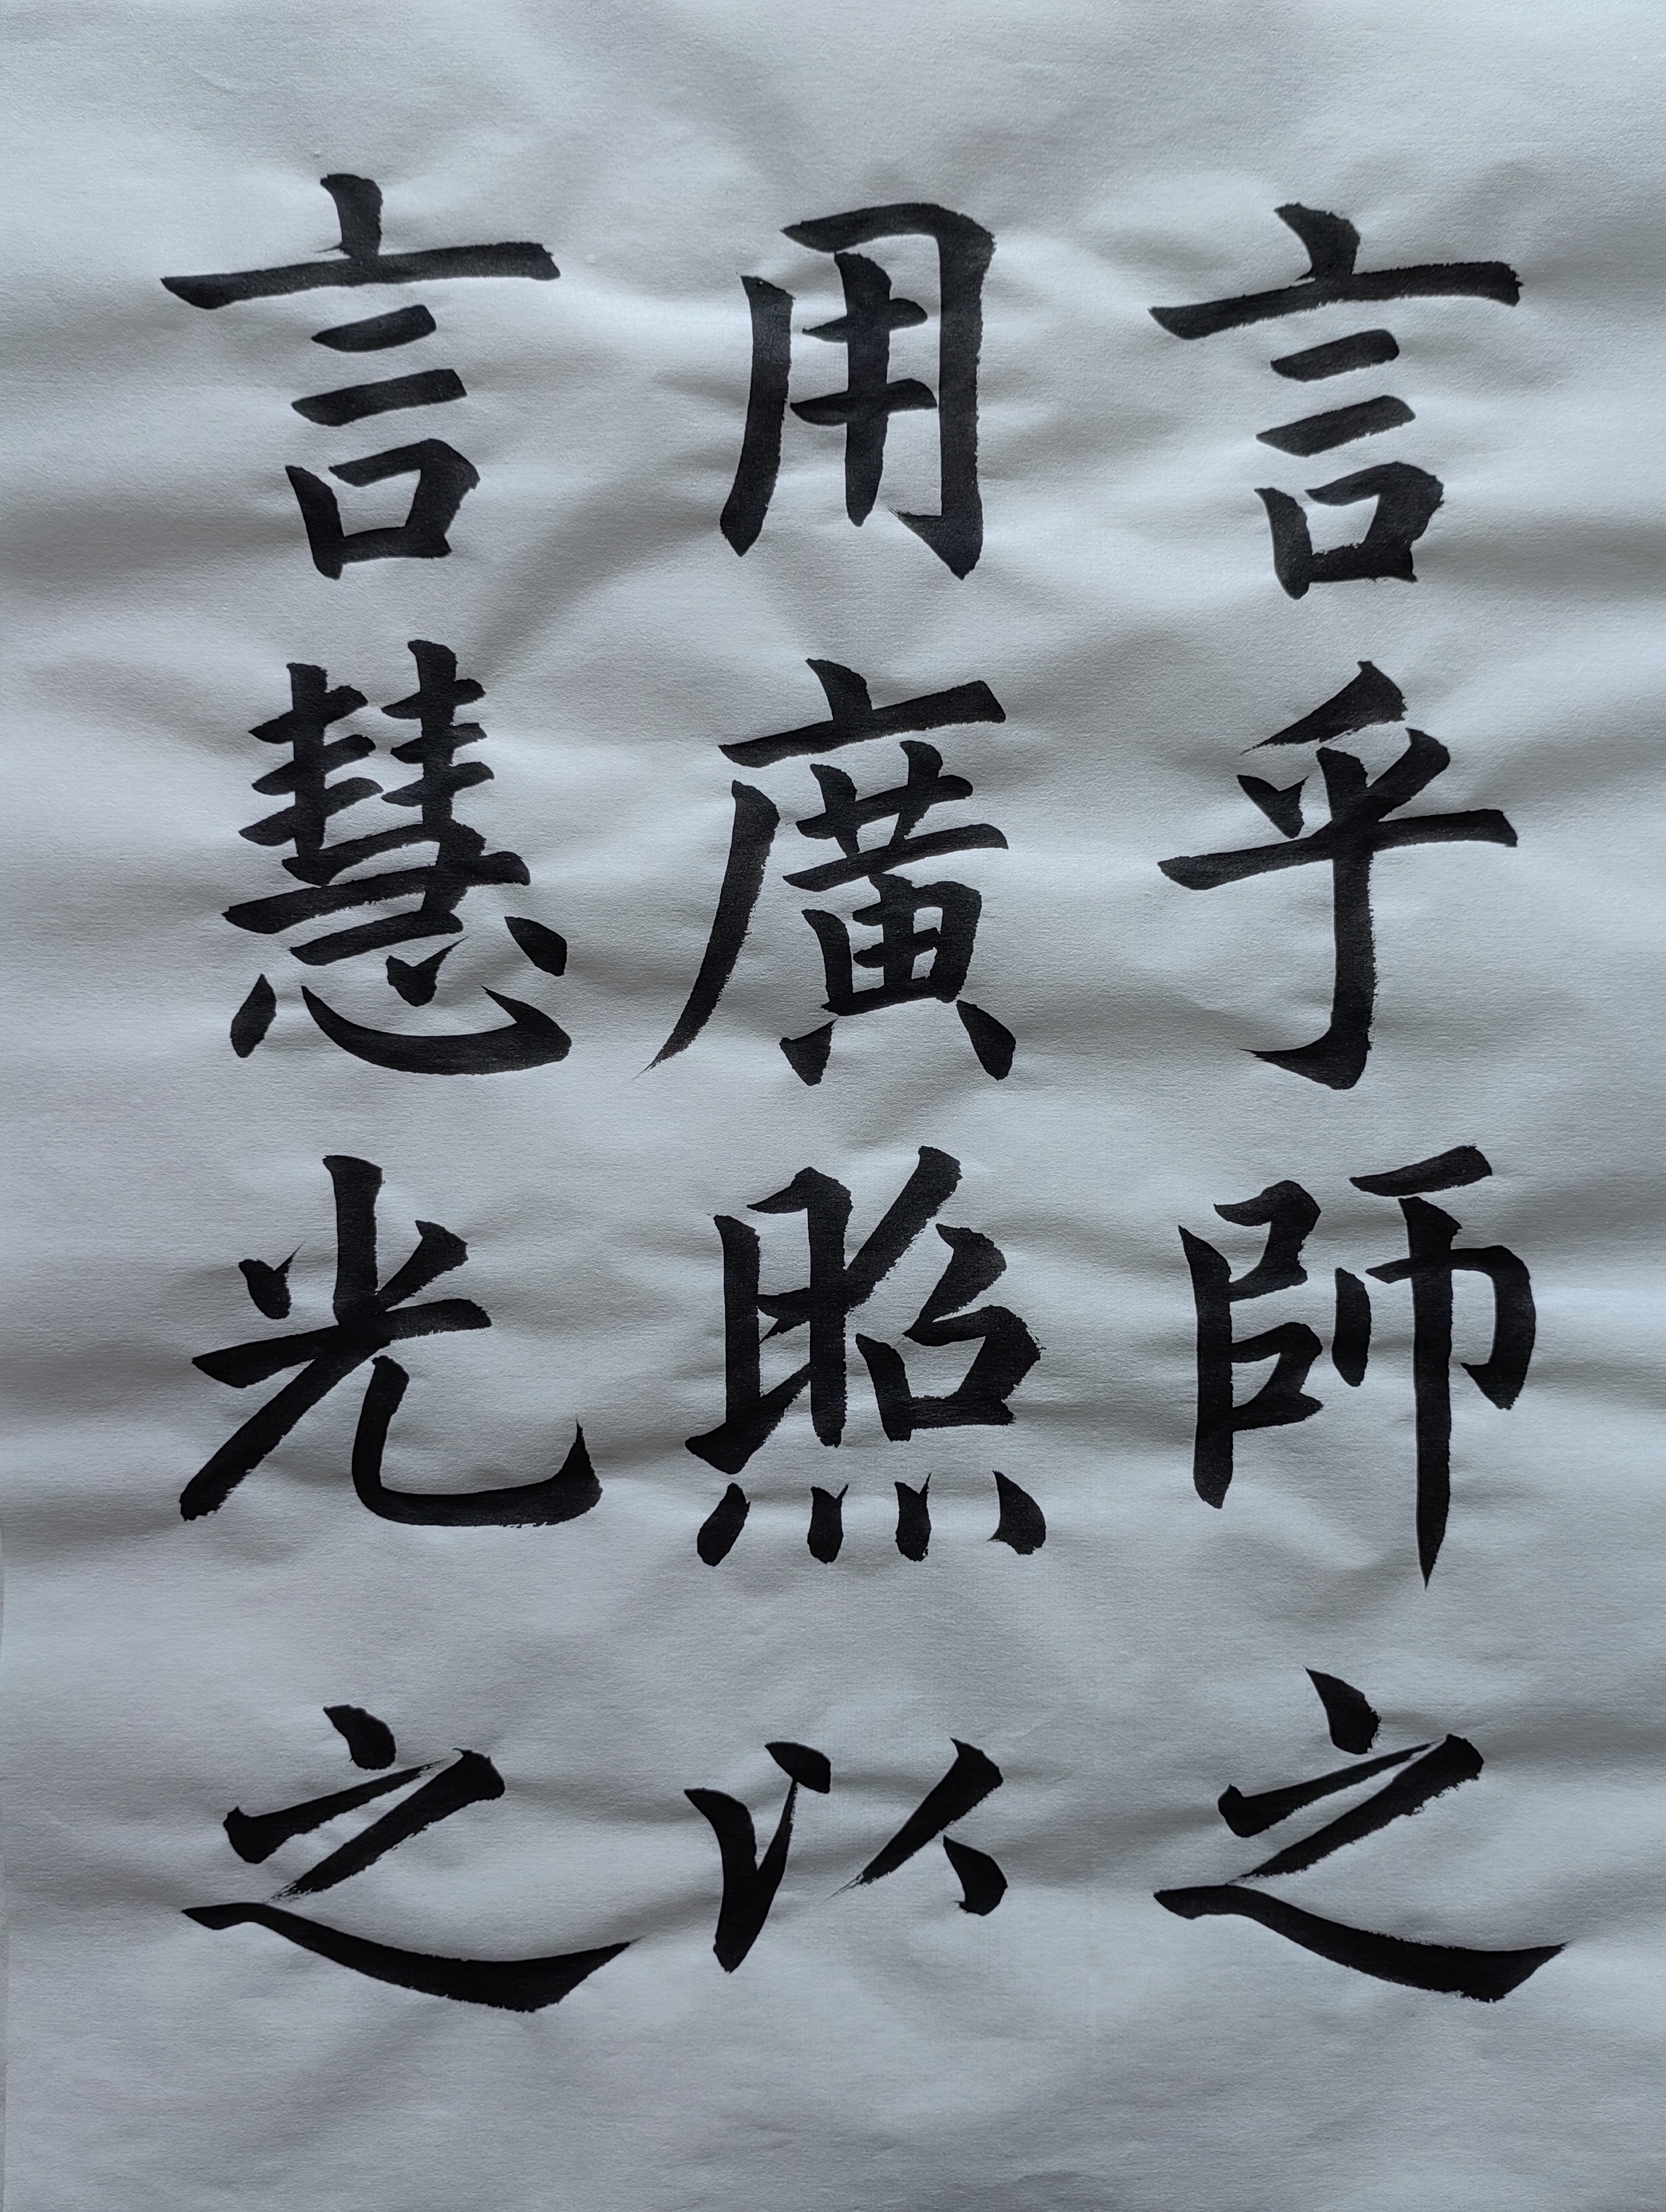 言乎師之
用廣照以
言慧光之